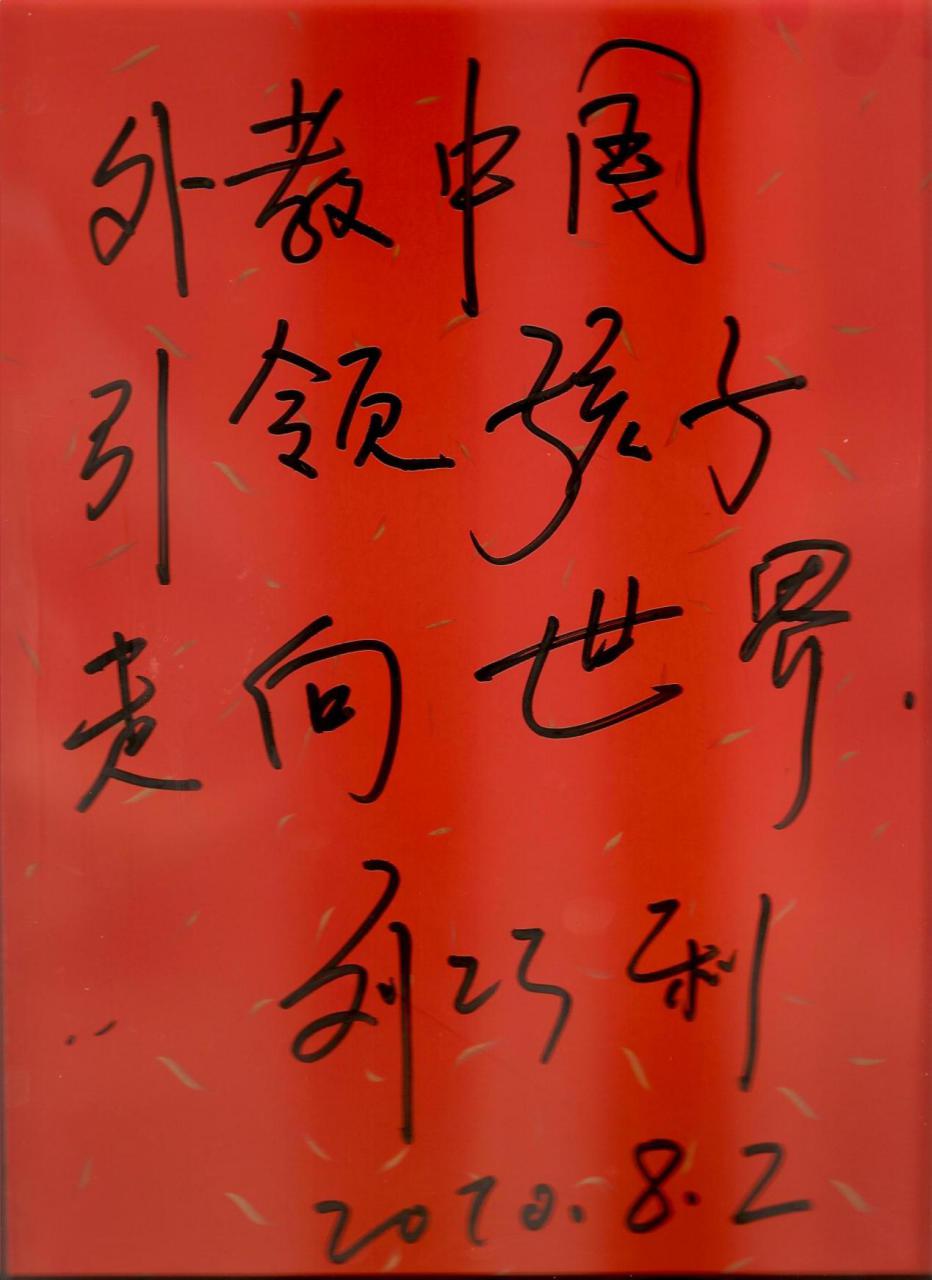 外教中国
引领孩子
走向世界
刘巧利
2020.8.2